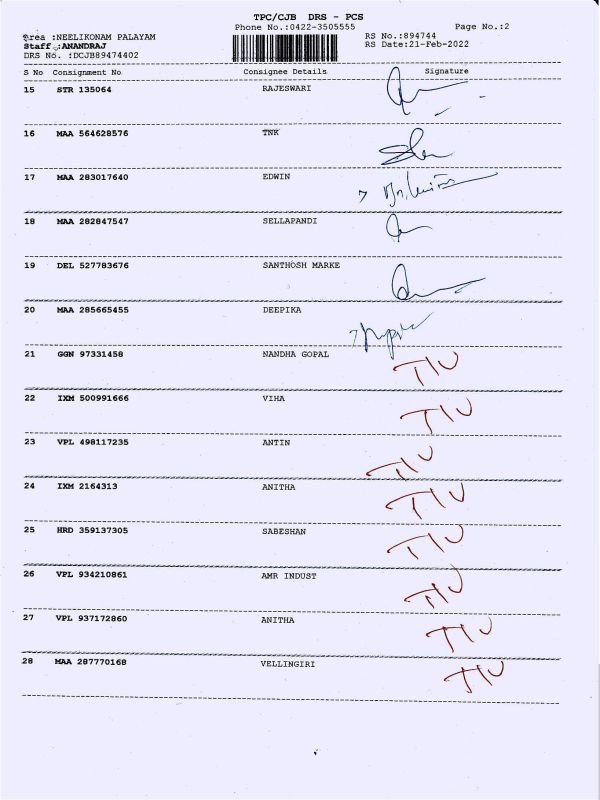 TPC/CJB DRS - PCS
Phone No.:0422-3505555
Page No.:2
Area :NEELIKONAM PALAYAM
RS No.:894744
Staff :ANANDRAJ
RS Date:21-Feb-2022
DRS No. :DCJB89474402
S No Consignment No Consignee Details Signature
15 STR 135064 RAJESWARI
16 MAA 564628576 TNK
17 MAA 283017640 EDWIN
18 MAA 282847547 SELLAPANDI
19 DEL 527783676 SANTHOSH MARKE
20 MAA 285665455 DEEPIKA
21 GGN 97331458 NANDHA GOPAL
22 IXM 500991666 VIHA
23 VPL 498117235 ANTIN
24 IXM 2164313 ANITHA
25 HRD 359137305 SABESHAN
26 VPL 934210861 AMR INDUST
27 VPL 937172860 ANITHA
28 MAA 287770168 VELLINGIRI